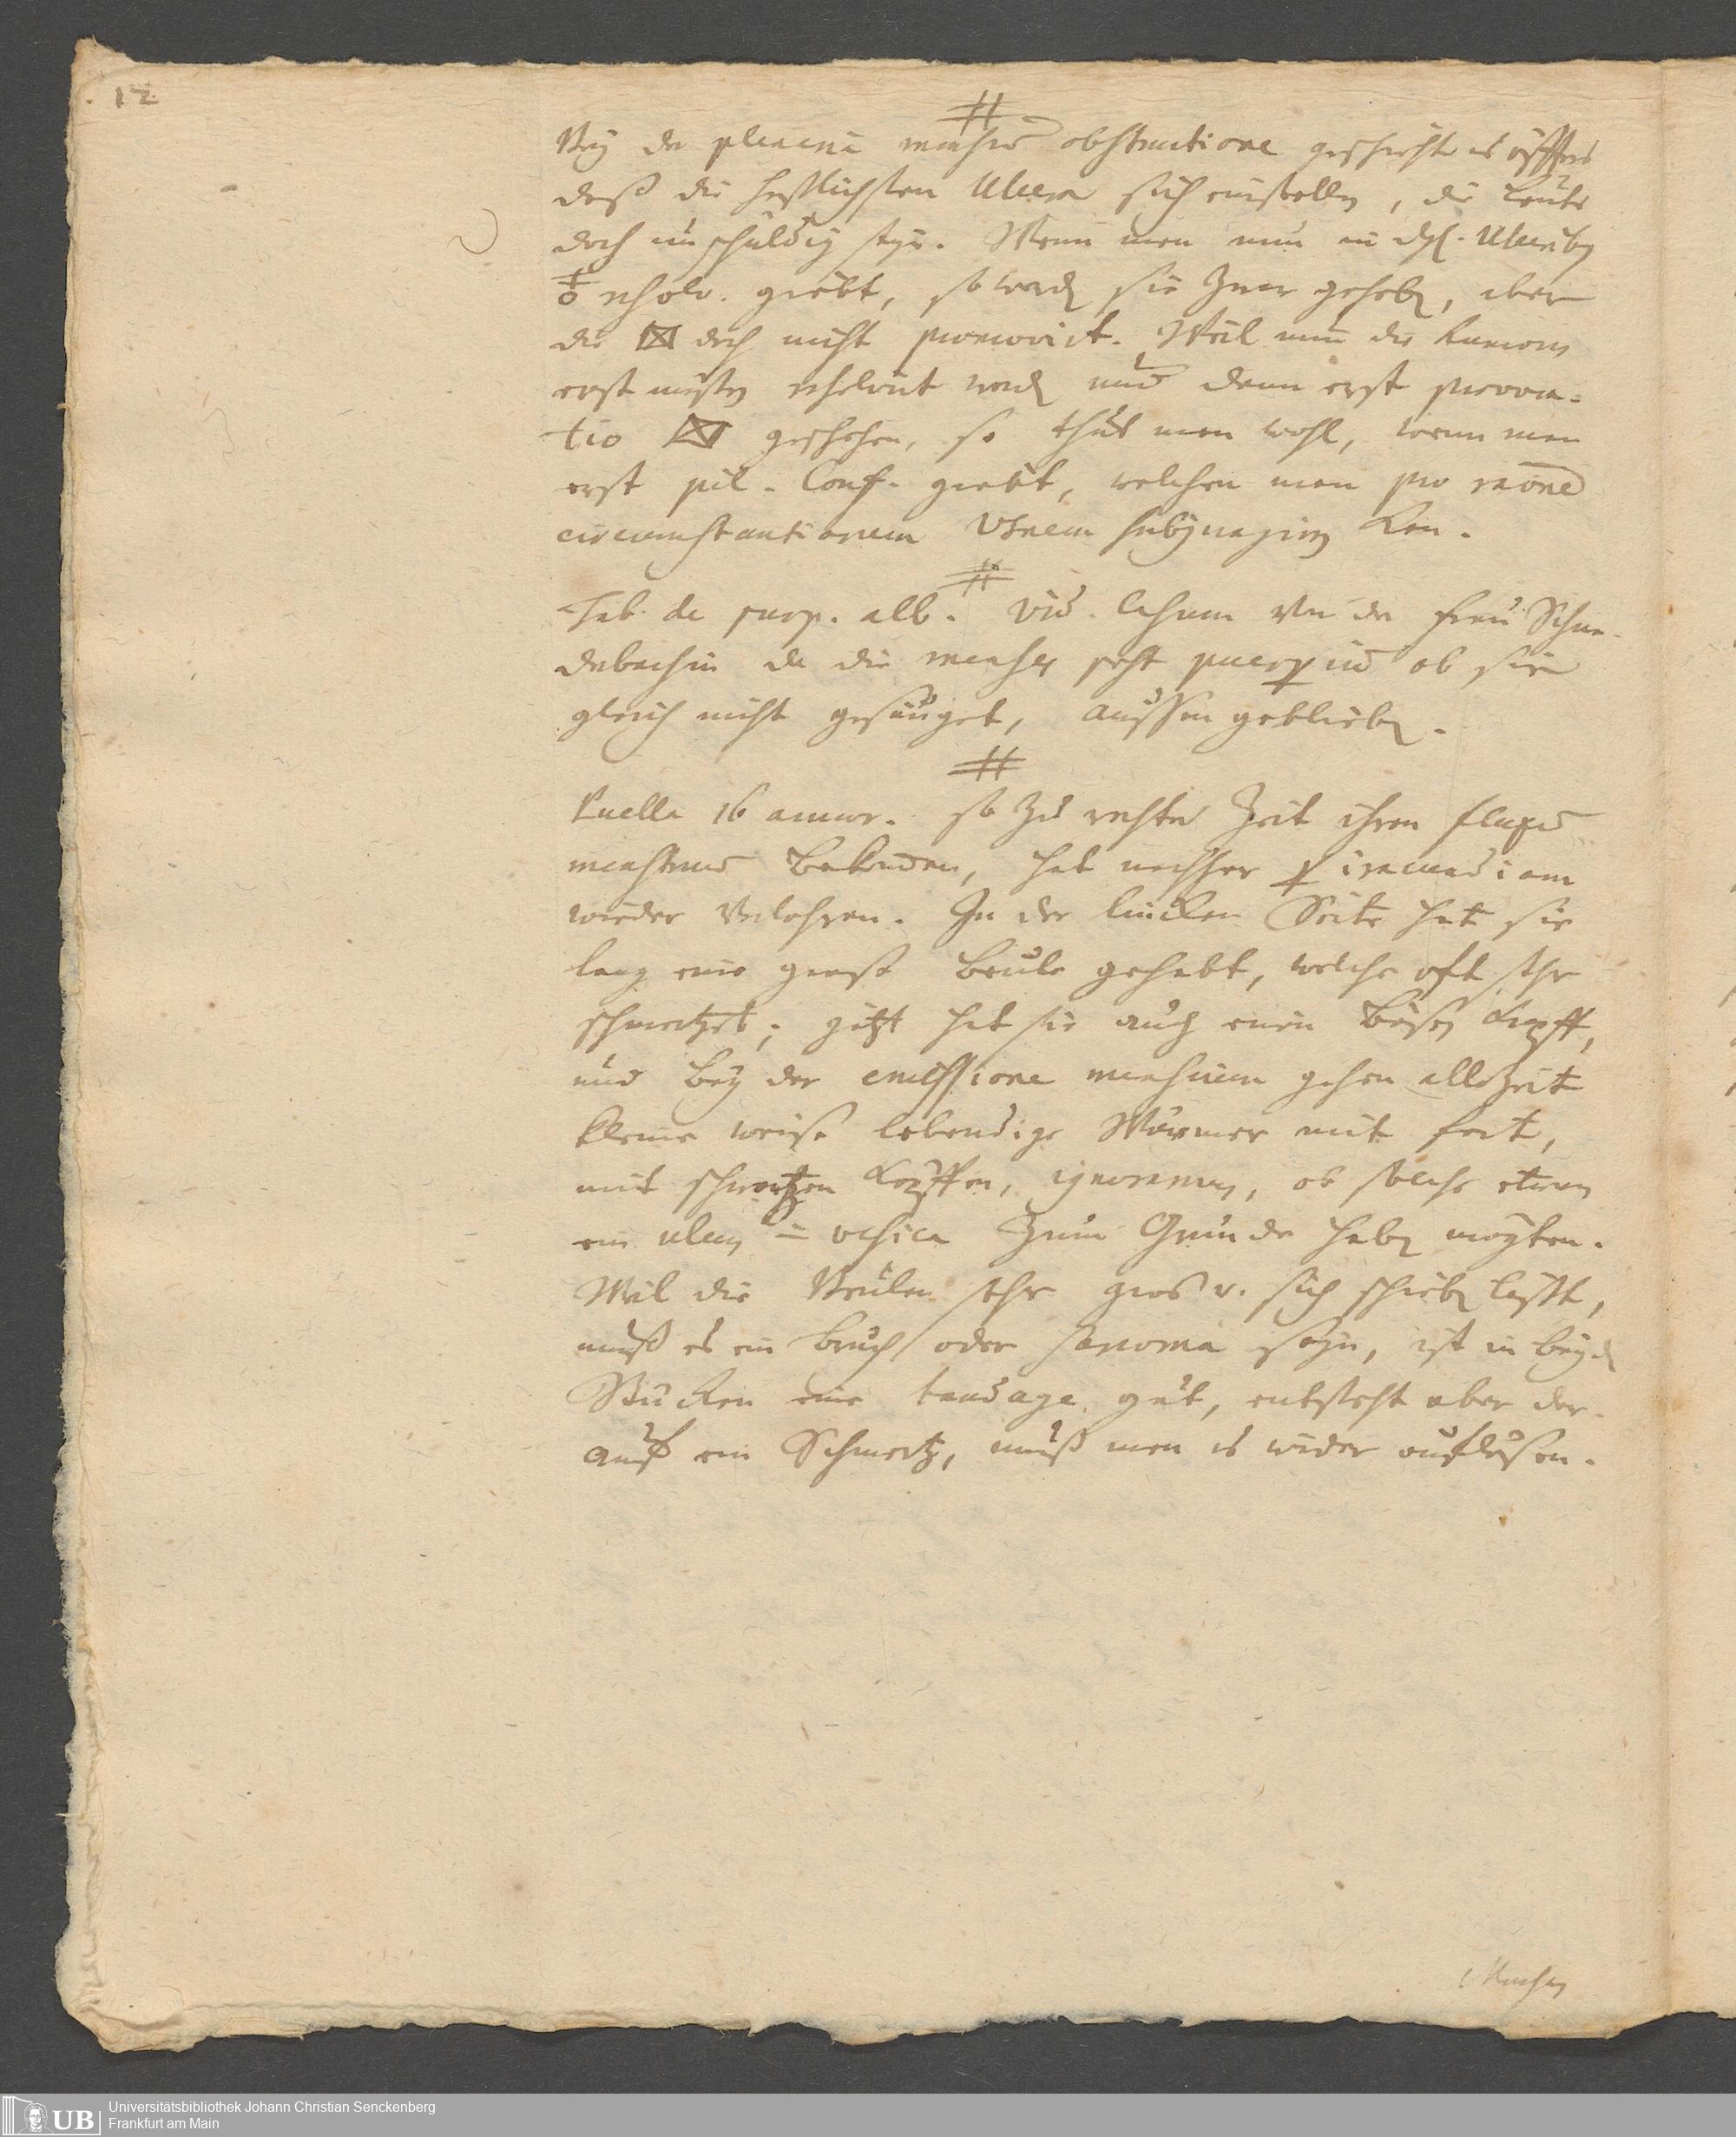 12
#
Bey der plenaria mensiū obstructione geschieht es öffters
daß die heßlichsten Ulcera sich einstellen, die Leute
doch unschuldig seyn. Wenn man nun in dgl. Ulceribus
resolv. giebt, so werden sie zwar gehoben, aber
die doch nicht promovirt. Weil nun die humores
erst müßen resolvirt werden und dann erst provoca-
tio geschehen, so thut man wohl, wenn man
erst pil. Conf. giebt, welchen man pro raōne
circumstantiarum kan.
#
Tab. de purp. alb. vid. Casum von der Frau Schna-
debachin da die menses post puerperiū ob sie
gleich nicht gesäuget, aussen geblieben.
#
Puella 16 annor. so zu rechter Zeit ihren fluxū
menstruū bekommen, hat nachher per iracundiam
wieder verlohren. In der lincken Seite hat sie
lang eine grose Beule gehabt, welche oft sehr
schmertzet; jetzt hat sie auch einen bösen Kopff,
und bey der emissione mensium gehen allezeit
kleine weise lebendige Würmer mit fort,
mit schwartzen Köpffen, ignoramus, ob solche etwan
ein ulcus in vesica zum Grunde haben mögten.
Weil die Beulen sehr gros u. sich schieben läst,
muß es ein Bruch oder sarcoma seyn, ist in beyden
Stücken eine bandage gut, entsteht aber dar-
auf ein Schmertz, muß man es wider auflösen.
Menses
Universitätsbibliothek Johann Christian Senckenberg
UB
Frankfurt am Main